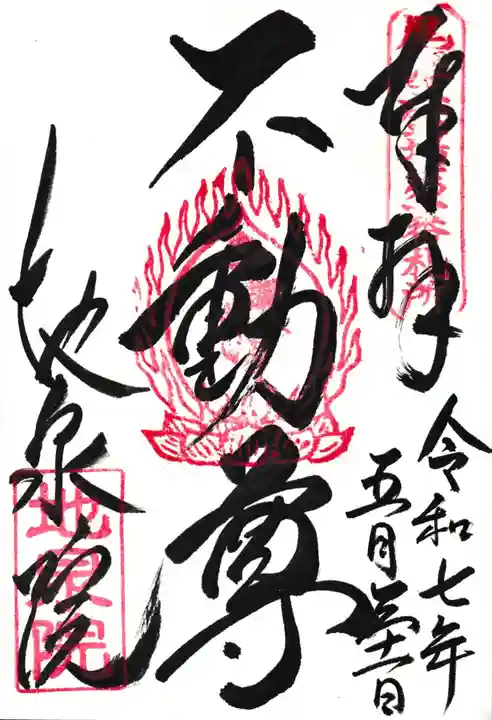 奉拝
令和七年
五月
日
不動尊
地泉院
地泉院